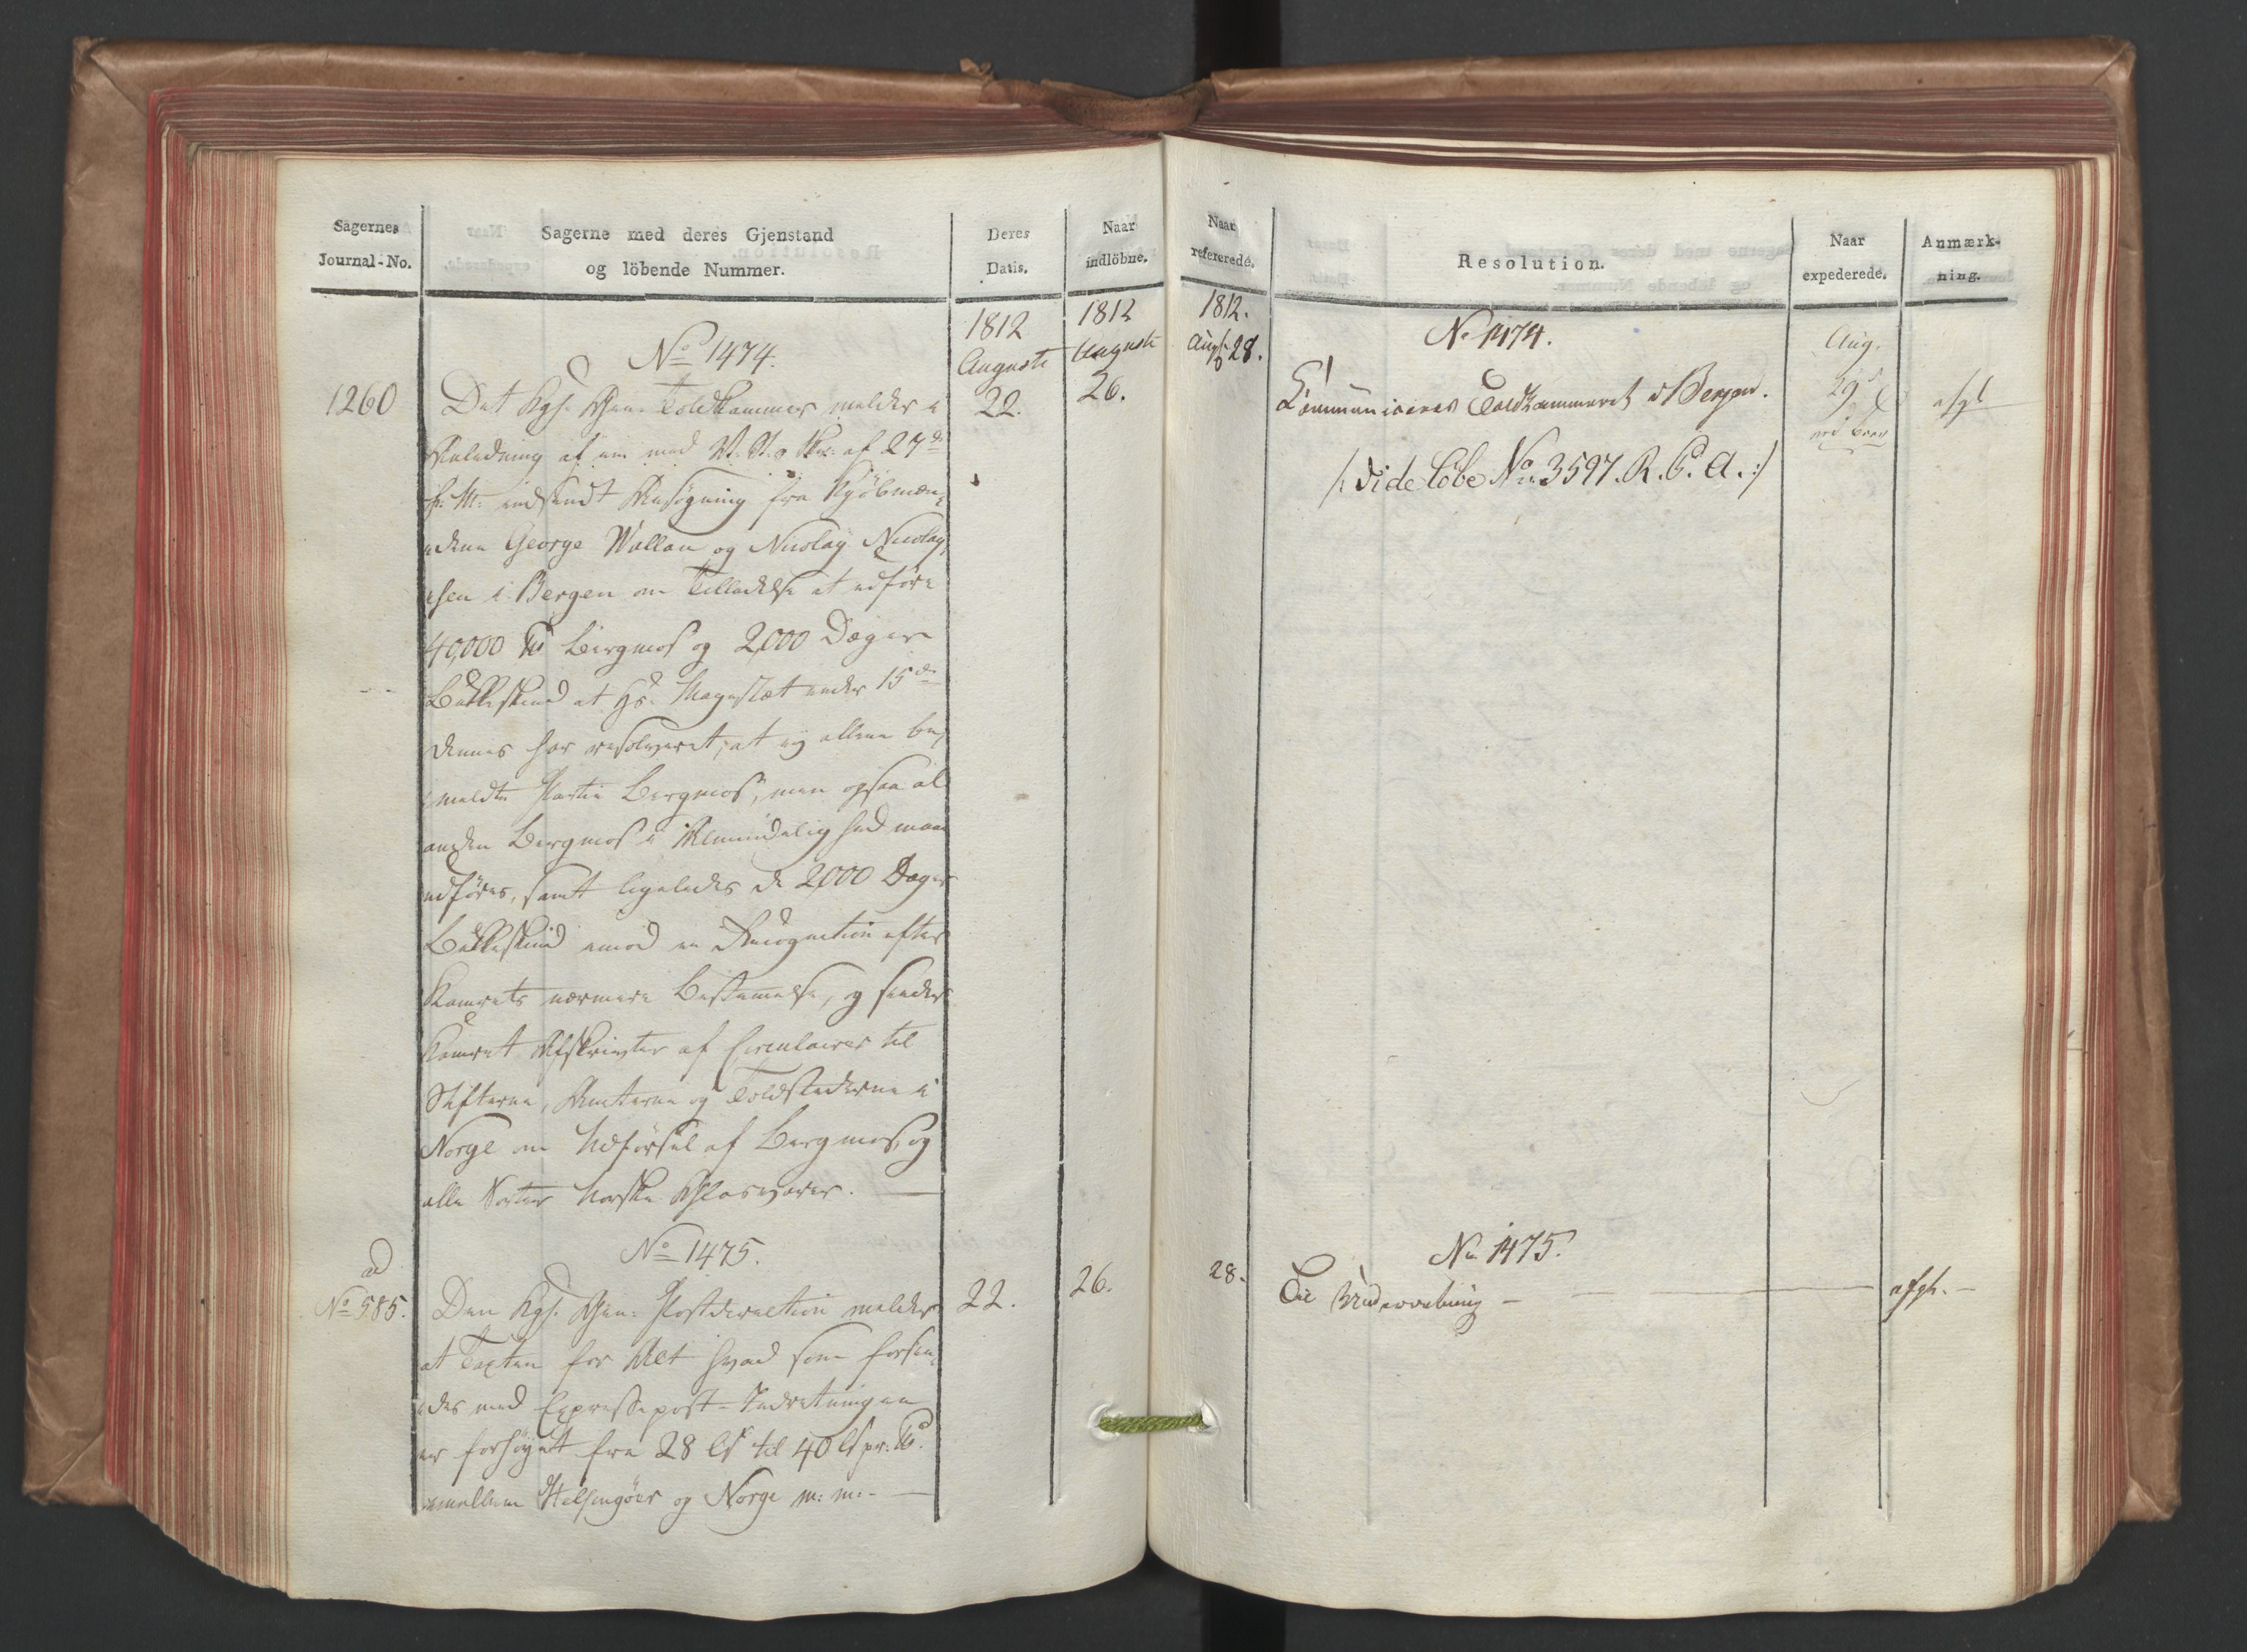 Sagernes
Journal-No.
Sagerne med deres Gjenstand
og löbende Nummer.
Deres
Datis.
Naar
indlöbne.
1812
Augusti
1812
Augusti
No 1474.
1260
Det Kgl. Gen. Toldkammer melder i
22.
26.
Anledning af en med V. St. o Skr. af 27de
f: M: indsendt Ansøgning fra Kjöbmæn-
dene George Wallau og Nicolay Nicolay
sen i Bergen om Tilladelse at udføre
40,000 ℔ Bergmos og 2,000 Deger
Bukkeskind at Hs. Majestæt under 15de
dennes har resolveret, at ej allene be-
meldte Partie Bergmos, men ogsaa al
anden Bergmos i Almindelighed maa
udføres, samt ligeledes de 2,000 Deger
Bukkeskind imod en Recognition efter
Kamrets nærmere Bestemmelse, og sender
Kamret Afskrifter af Circulairer til
Stifterne, Amterne og Toldstederne i
Norge om Udførsel af Bergmos, og
alle Sorter Norske Glasvarer.
No 1475.
ad
No 585.
Den Kgl. Gen: Postdirection melder
22.
26.
at Taxten for Alt hvad som forsen-
des med Expressepost-Indretningen
er forhöjet fra 28 ls til 40 ls pr: ℔
imellem Helsingöer og Norge m: m:
Naar
refererede.
Resolution.
Naar
expederede.
Anmærk-
ning.
1812.
Augs. 28.
No 1474.
Aug.
Communiceres Toldkammeret i Bergen.
29
afgl
/: vide Löbe No 3597. R. C. A. :/
No 1475.
28.
Til Underretning
afgl.